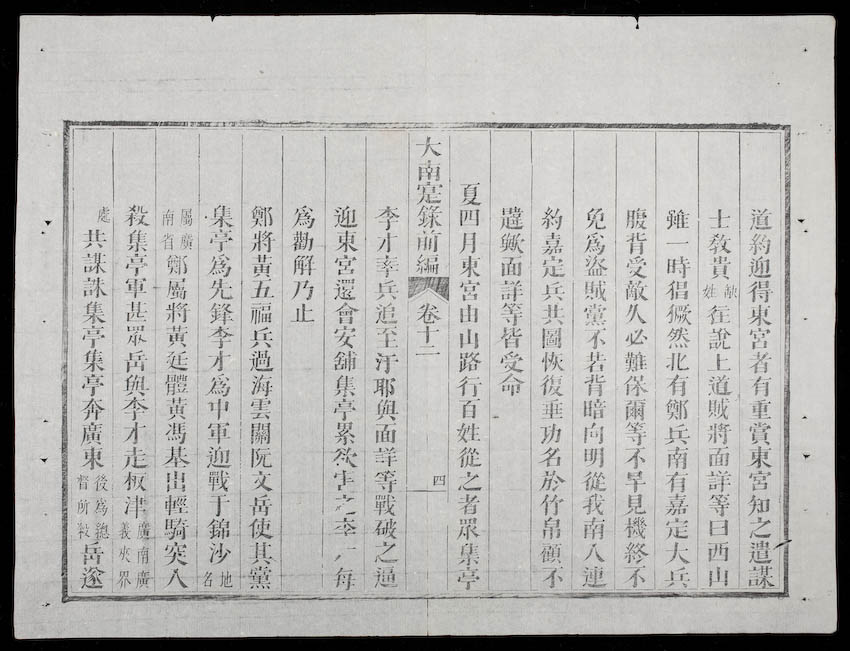 道約迎得東宮者有重賞東宮知之遣謀
士敎貴缺姓往說上道賊將面詳等曰西山
雖一時猖獗然北有鄭兵南有嘉定大兵
腹背受敵久必難保爾等不早見機終不
免爲盜賊黨不若背暗向明從我南入連
約嘉定兵共圖恢復垂功名於竹帛顧不
韙歟面詳等皆受命
夏四月東宮由山路行百姓從之者眾集亭
大南寔錄前編 卷十二 四
李才率兵追至汙耶與面詳等戰破之逼
迎東宮還會安舖集亭累欲害之李才每
爲勸解乃止
鄭將黃五福兵過海雲關阮文岳使其黨
集亭爲先鋒李才爲中軍迎戰于錦沙地名
屬廣南省鄭屬將黃廷體黃馮基出輕騎突入
殺集亭軍甚眾岳與李才走板津廣南廣義夾界
處共謀誅集亭集亭奔廣東後爲總督所殺岳遂